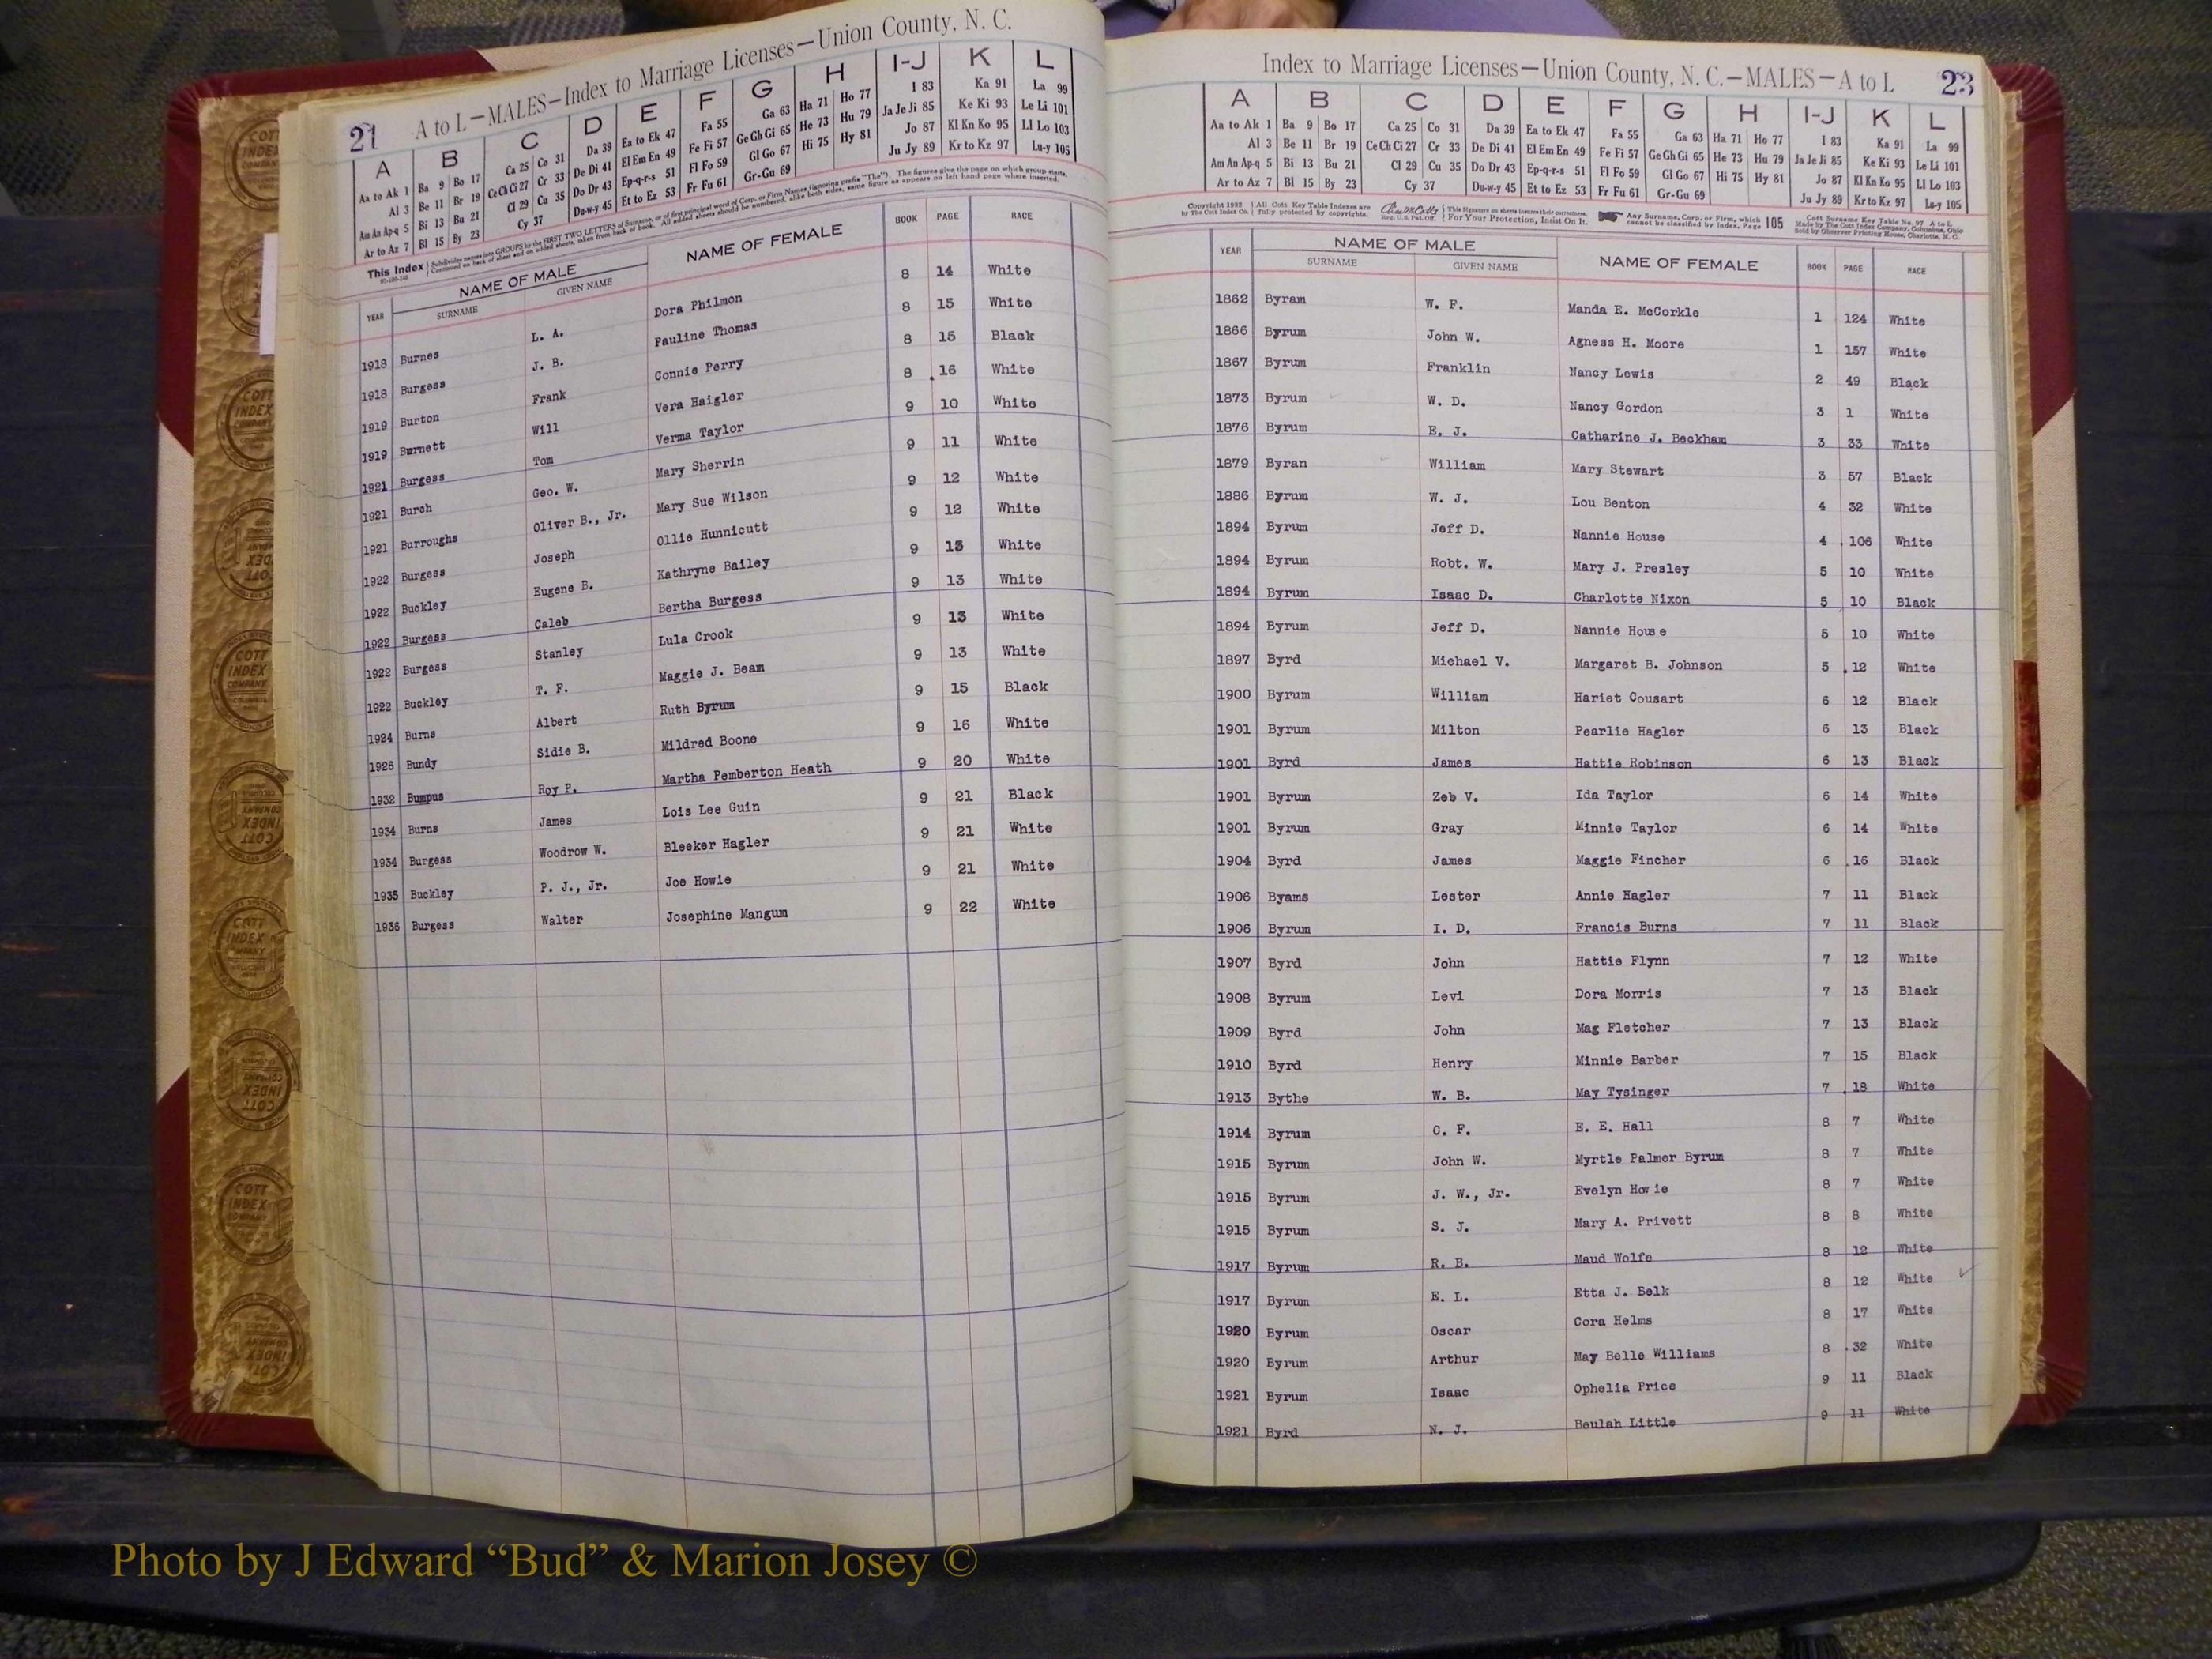 21 A to L—MALES—Index to Marriage Licenses—Union County, N. C.
A B C D E F G H I-J K L
Aa to Ak 1 Ba 9 Bo 17 Ca 25 Co 31 Da 39 Ea to Ek 47 Fa 55 Ga 63 Ha 71 Ho 77 I 83 Ka 91 La 99
Al 3 Be 11 Br 19 Ce Ch Ci 27 Cr 33 De Di 41 El Em En 49 Fe Fi 57 Ge Gh Gi 65 He 73 Hu 79 Ja Je Ji 85 Ke Ki 93 Le Li 101
Am An Ap-q 5 Bi 13 Bu 21 Cl 29 Cu 35 Do Dr 43 Ep-q-r-s 51 Fl Fo 59 Gl Go 67 Hi 75 Hy 81 Jo 87 Kl Kn Ko 95 Ll Lo 103
Ar to Az 7 Bl 15 By 23 Cy 37 Du-w-y 45 Et to Ez 53 Fr Fu 61 Gr-Gu 69 Ju Jy 89 Kr to Kz 97 Lu-y 105
This Index Subdivides names into GROUPS by the FIRST TWO LETTERS of Surname, or of first principal word of Corp. or Firm Names (ignoring prefix "The"). The figures give the page on which group starts.
Continued on back of sheet and on added sheets, taken from back of book. All added sheets should be numbered, alike both sides, same figure as appears on left hand page where inserted.
YEAR NAME OF MALE NAME OF FEMALE BOOK PAGE RACE
SURNAME GIVEN NAME
1918 Burnes L. A. Dora Philmon 8 14 White
1918 Burgess J. B. Pauline Thomas 8 15 White
1919 Burton Frank Connie Perry 8 15 Black
1919 Burnett Will Vera Haigler 8 16 White
1921 Burgess Tom Verma Taylor 9 10 White
1921 Burch Geo. W. Mary Sherrin 9 11 White
1921 Burroughs Oliver B., Jr. Mary Sue Wilson 9 12 White
1922 Burgess Joseph Ollie Hunnicutt 9 12 White
1922 Buckley Eugene B. Kathryne Bailey 9 13 White
1922 Burgess Caleb Bertha Burgess 9 13 White
1922 Burgess Stanley Lula Crook 9 13 White
1922 Buckley T. F. Maggie J. Beam 9 13 White
1924 Burns Albert Ruth Byrum 9 15 Black
1926 Bundy Sidie B. Mildred Boone 9 16 White
1932 Bumpus Roy P. Martha Pemberton Heath 9 20 White
1934 Burns James Lois Lee Guin 9 21 Black
1934 Burgess Woodrow W. Bleeker Hagler 9 21 White
1935 Buckley P. J., Jr. Joe Howie 9 21 White
1936 Burgess Walter Josephine Mangum 9 22 White
Index to Marriage Licenses—Union County, N. C.—MALES—A to L 23
A B C D E F G H I-J K L
Aa to Ak 1 Ba 9 Bo 17 Ca 25 Co 31 Da 39 Ea to Ek 47 Fa 55 Ga 63 Ha 71 Ho 77 I 83 Ka 91 La 99
Al 3 Be 11 Br 19 Ce Ch Ci 27 Cr 33 De Di 41 El Em En 49 Fe Fi 57 Ge Gh Gi 65 He 73 Hu 79 Ja Je Ji 85 Ke Ki 93 Le Li 101
Am An Ap-q 5 Bi 13 Bu 21 Cl 29 Cu 35 Do Dr 43 Ep-q-r-s 51 Fl Fo 59 Gl Go 67 Hi 75 Hy 81 Jo 87 Kl Kn Ko 95 Ll Lo 103
Ar to Az 7 Bl 15 By 23 Cy 37 Du-w-y 45 Et to Ez 53 Fr Fu 61 Gr-Gu 69 Ju Jy 89 Kr to Kz 97 Lu-y 105
Copyright 1932 All Cott Key Table Indexes are This Signature on sheets insures their correctness. Any Surname, Corp. or Firm, which 105 Cott Surname Key Table No. 97 A to L
by The Cott Index Co. fully protected by copyrights. Reg. U. S. Pat. Off. For Your Protection, Insist On It. cannot be classified by Index, Page Made by The Cott Index Company, Columbus, Ohio
Sold by Observer Printing House, Charlotte, N. C.
YEAR NAME OF MALE NAME OF FEMALE BOOK PAGE RACE
SURNAME GIVEN NAME
1862 Byram W. F. Manda E. McCorkle 1 124 White
1866 Byrum John W. Agness H. Moore 1 157 White
1867 Byrum Franklin Nancy Lewis 2 49 Black
1873 Byrum W. D. Nancy Gordon 3 1 White
1876 Byrum E. J. Catharine J. Beckham 3 33 White
1879 Byran William Mary Stewart 3 57 Black
1886 Byrum W. J. Lou Benton 4 32 White
1894 Byrum Jeff D. Nannie House 4 106 White
1894 Byrum Robt. W. Mary J. Presley 5 10 White
1894 Byrum Isaac D. Charlotte Nixon 5 10 Black
1894 Byrum Jeff D. Nannie House 5 10 White
1897 Byrd Michael V. Margaret B. Johnson 5 12 White
1900 Byrum William Hariet Cousart 6 12 Black
1901 Byrum Milton Pearlie Hagler 6 13 Black
1901 Byrd James Hattie Robinson 6 13 Black
1901 Byrum Zeb V. Ida Taylor 6 14 White
1901 Byrum Gray Minnie Taylor 6 14 White
1904 Byrd James Maggie Fincher 6 16 Black
1906 Byams Lester Annie Hagler 7 11 Black
1906 Byrum I. D. Francis Burns 7 11 Black
1907 Byrd John Hattie Flynn 7 12 White
1908 Byrum Levi Dora Morris 7 13 Black
1909 Byrd John Mag Fletcher 7 13 Black
1910 Byrd Henry Minnie Barber 7 15 Black
1913 Bythe W. B. May Tysinger 7 18 White
1914 Byrum C. F. E. E. Hall 8 7 White
1915 Byrum John W. Myrtle Palmer Byrum 8 7 White
1915 Byrum J. W., Jr. Evelyn Howie 8 7 White
1915 Byrum S. J. Mary A. Privett 8 8 White
1917 Byrum R. B. Maud Wolfe 8 12 White
1917 Byrum E. L. Etta J. Belk 8 12 White
1920 Byrum Oscar Cora Helms 8 17 White
1920 Byrum Arthur May Belle Williams 8 32 White
1921 Byrum Isaac Ophelia Price 9 11 Black
1921 Byrd N. J. Beulah Little 9 11 White
Photo by J Edward “Bud” & Marion Josey ©